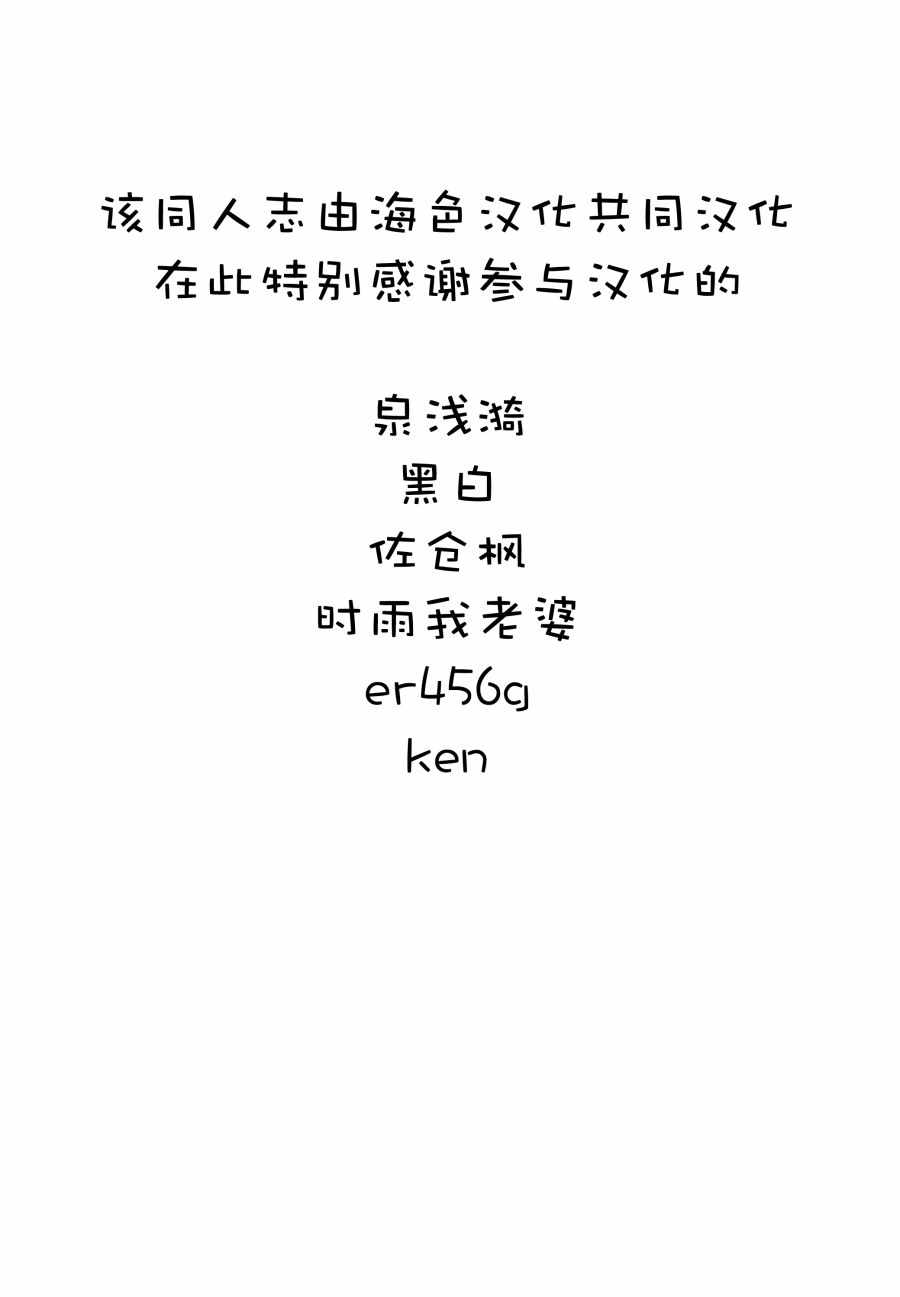 该同人志由海色汉化共同汉化
在此特别感谢参与汉化的
泉浅漪
黑白
佐仓枫
时雨我老婆
er456g
ken